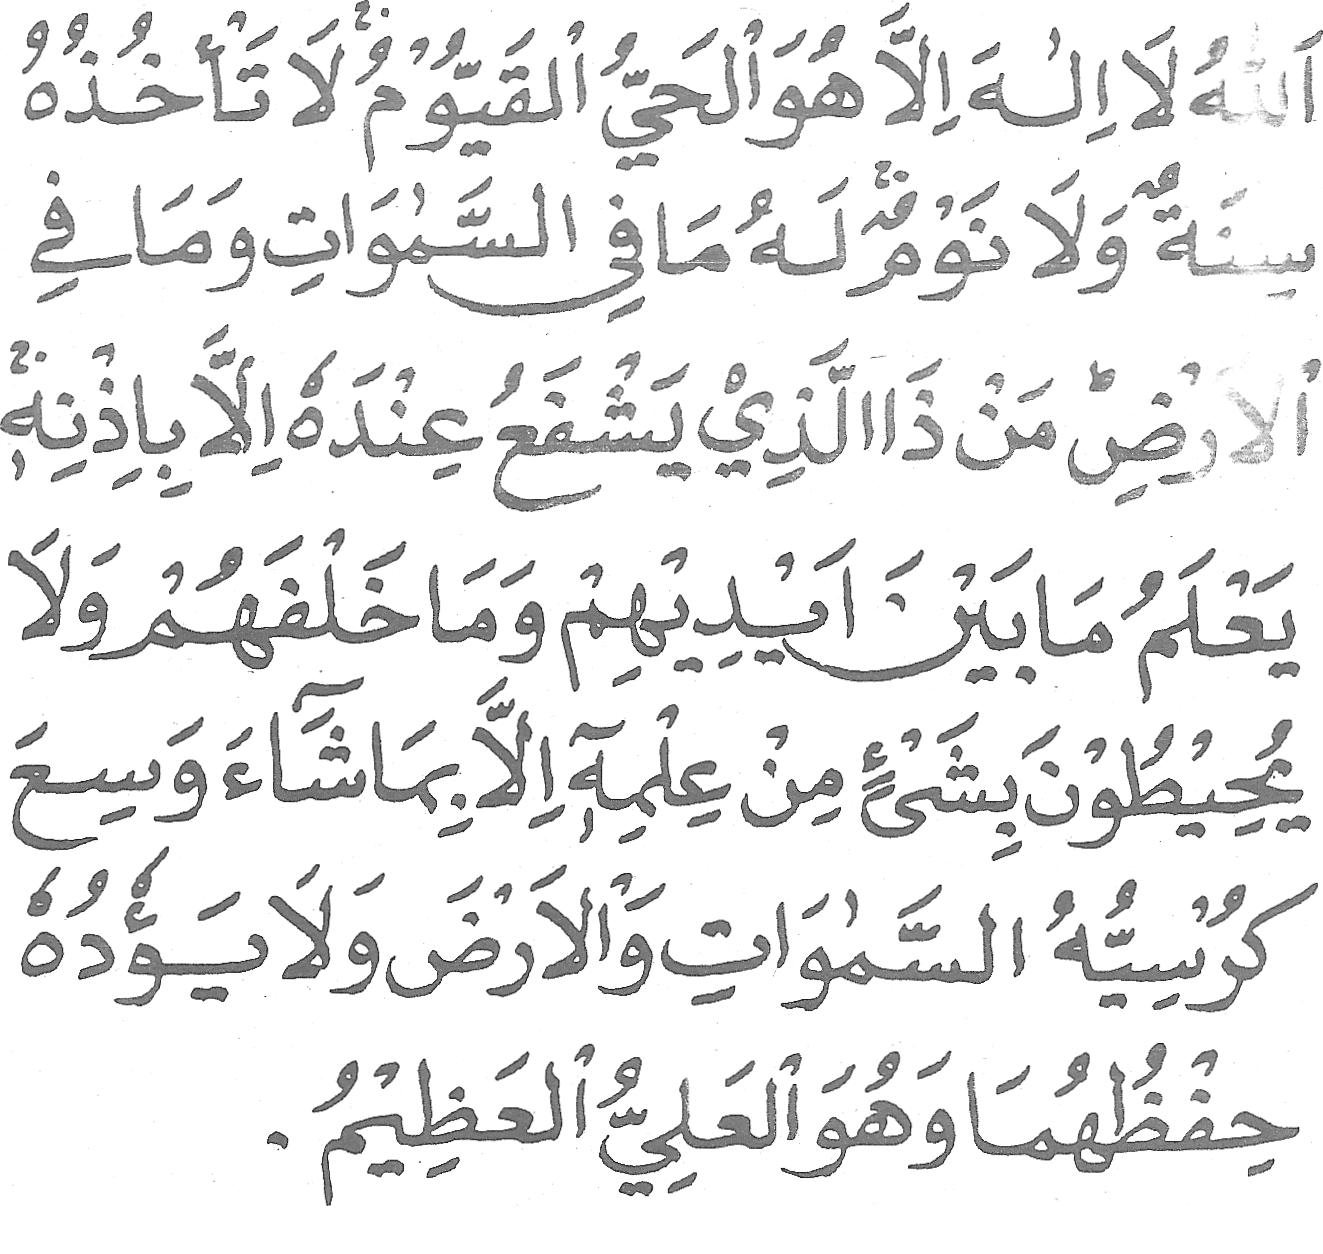 اَللّٰهُ لَا اِلٰهَ اِلَّا هُوَ ٱلْحَيُّ ٱلْقَيُّوْمُ ۚ لَا تَأْخُذُهُ
سِنَةٌ وَلَا نَوْمٌ ۚ لَهُ مَا فِي السَّمٰوَاتِ وَمَا فِي
ٱلْاَرْضِ ؕ مَنْ ذَا الَّذِيْ يَشْفَعُ عِنْدَهٗ اِلَّا بِاِذْنِهٖ ۚ
يَعْلَمُ مَا بَيْنَ اَيْدِيْهِمْ وَمَا خَلْفَهُمْ وَلَا
يُحِيْطُوْنَ بِشَىْءٍ مِنْ عِلْمِهٖٓ اِلَّا بِمَا شَآءَ وَسِعَ
كُرْسِيُّهُ السَّمٰوَاتِ وَٱلْاَرْضَ وَلَا يَـؤُدُهٗ
حِفْظُهُمَا وَهُوَ ٱلْعَلِيُّ ٱلْعَظِيْمُ .